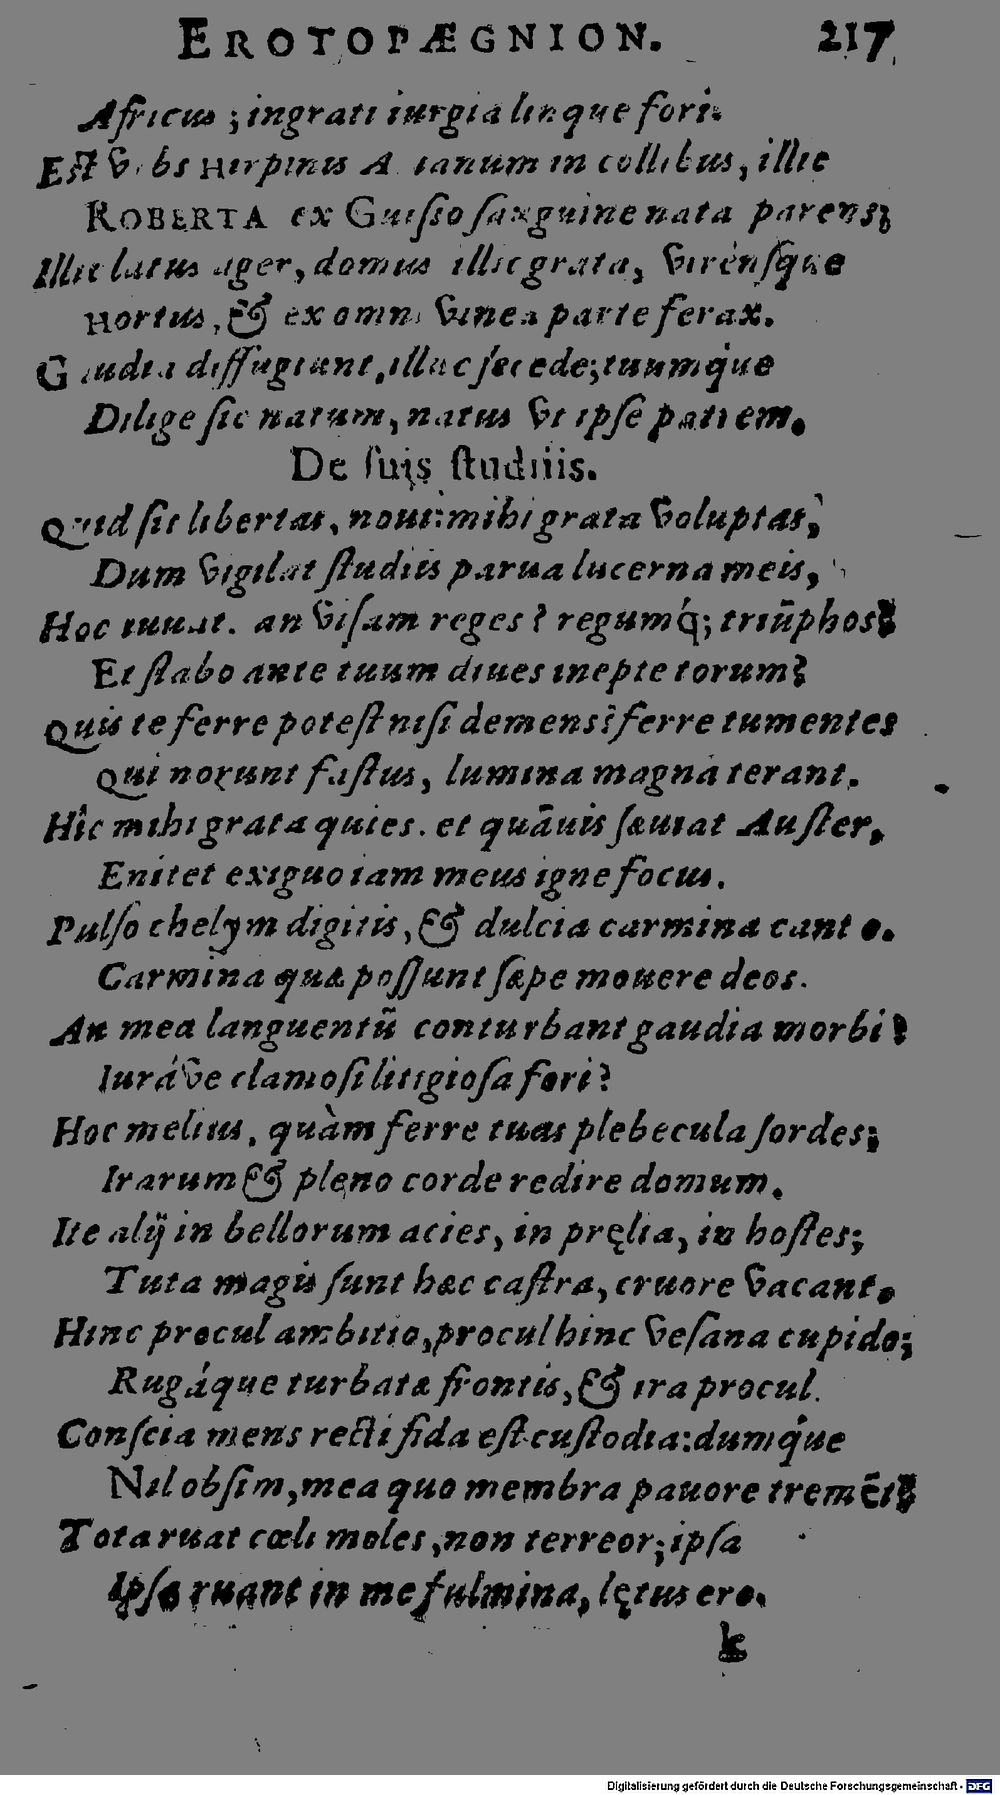 EROTOPÆGNION. 217
Africus ; ingrati iurgia linque fori.
Est Vrbs Hirpinis in collibus, illic
ROBERTA ex Guisso sanguine nata parens;
Illic latus ager, domus illic grata, virénsque
Hortus, & ex omni vinea parte ferax.
Gaudia diffugiunt, illuc secede; tuumq́ue
Dilige sic natum, natus vt ipse patrem.
De suis studiis.
Quid sit libertas, noui: mihi grata voluptas,
Dum vigilat studiis parua lucerna meis,
Hoc iuuat. an visam reges? regumq́; triũphos?
Et stabo ante tuum diues inepte torum?
Quis te ferre potest nisi demens? ferre tumentes
Qui norunt fastus, lumina magna terant.
Hîc mihi grata quies. et quãuis sæuiat Auster,
Enitet exiguo iam meus igne focus.
Pulso chelym digitis, & dulcia carmina canto.
Carmina quæ possunt sæpe mouere deos.
An mea languentũ conturbant gaudia morbi?
Iuráve clamosi litigiosa fori?
Hoc melius, quàm ferre tuas plebecula sordes;
Irarum & pleno corde redire domum.
Ite alij in bellorum acies, in pręlia, in hostes;
Tuta magis sunt hæc castra, cruore vacant.
Hinc procul ambitio, procul hinc vesana cupido;
Rugáque turbatæ frontis, & ira procul.
Conscia mens recti fida est custodia: dumq́ue
Nil obsim, mea quo membra pauore tremẽt?
Tota ruat cœli moles, non terreor; ipsa
Ipsa ruant in me fulmina, lętus ero.
k
Digitalisierung gefördert durch die Deutsche Forschungsgemeinschaft - DFG